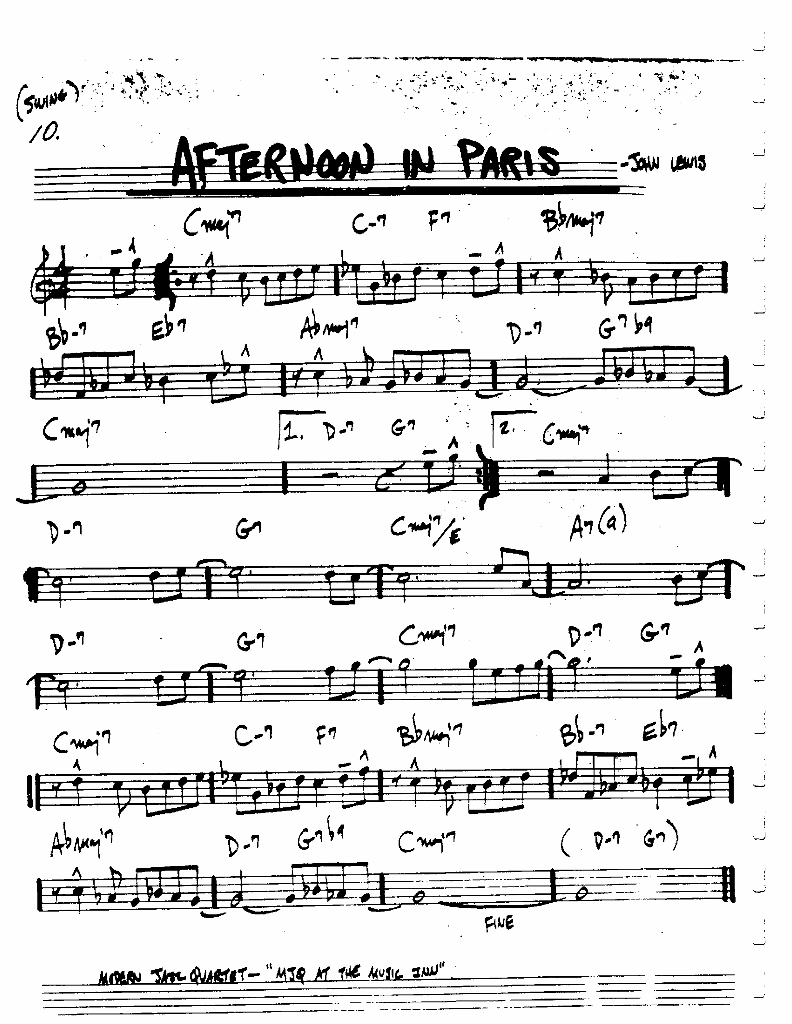 (SWING)
10.
AFTERNOON IN PARIS
-JOHN LEWIS
Cmaj7 C-7 F7 Bbmaj7
Bb-7 Eb7 Abmaj7 D-7 G7b9
Cmaj7 1. D-7 G7 2. Cmaj7
D-7 G7 Cmaj7/E A7(a)
D-7 G7 Cmaj7 D-7 G7
Cmaj7 C-7 F7 Bbmaj7 Bb-7 Eb7
Abmaj7 D-7 G7b9 Cmaj7 ( D-7 G7 )
FINE
MODERN JAZZ QUARTET- "MJQ AT THE MUSIC INN"